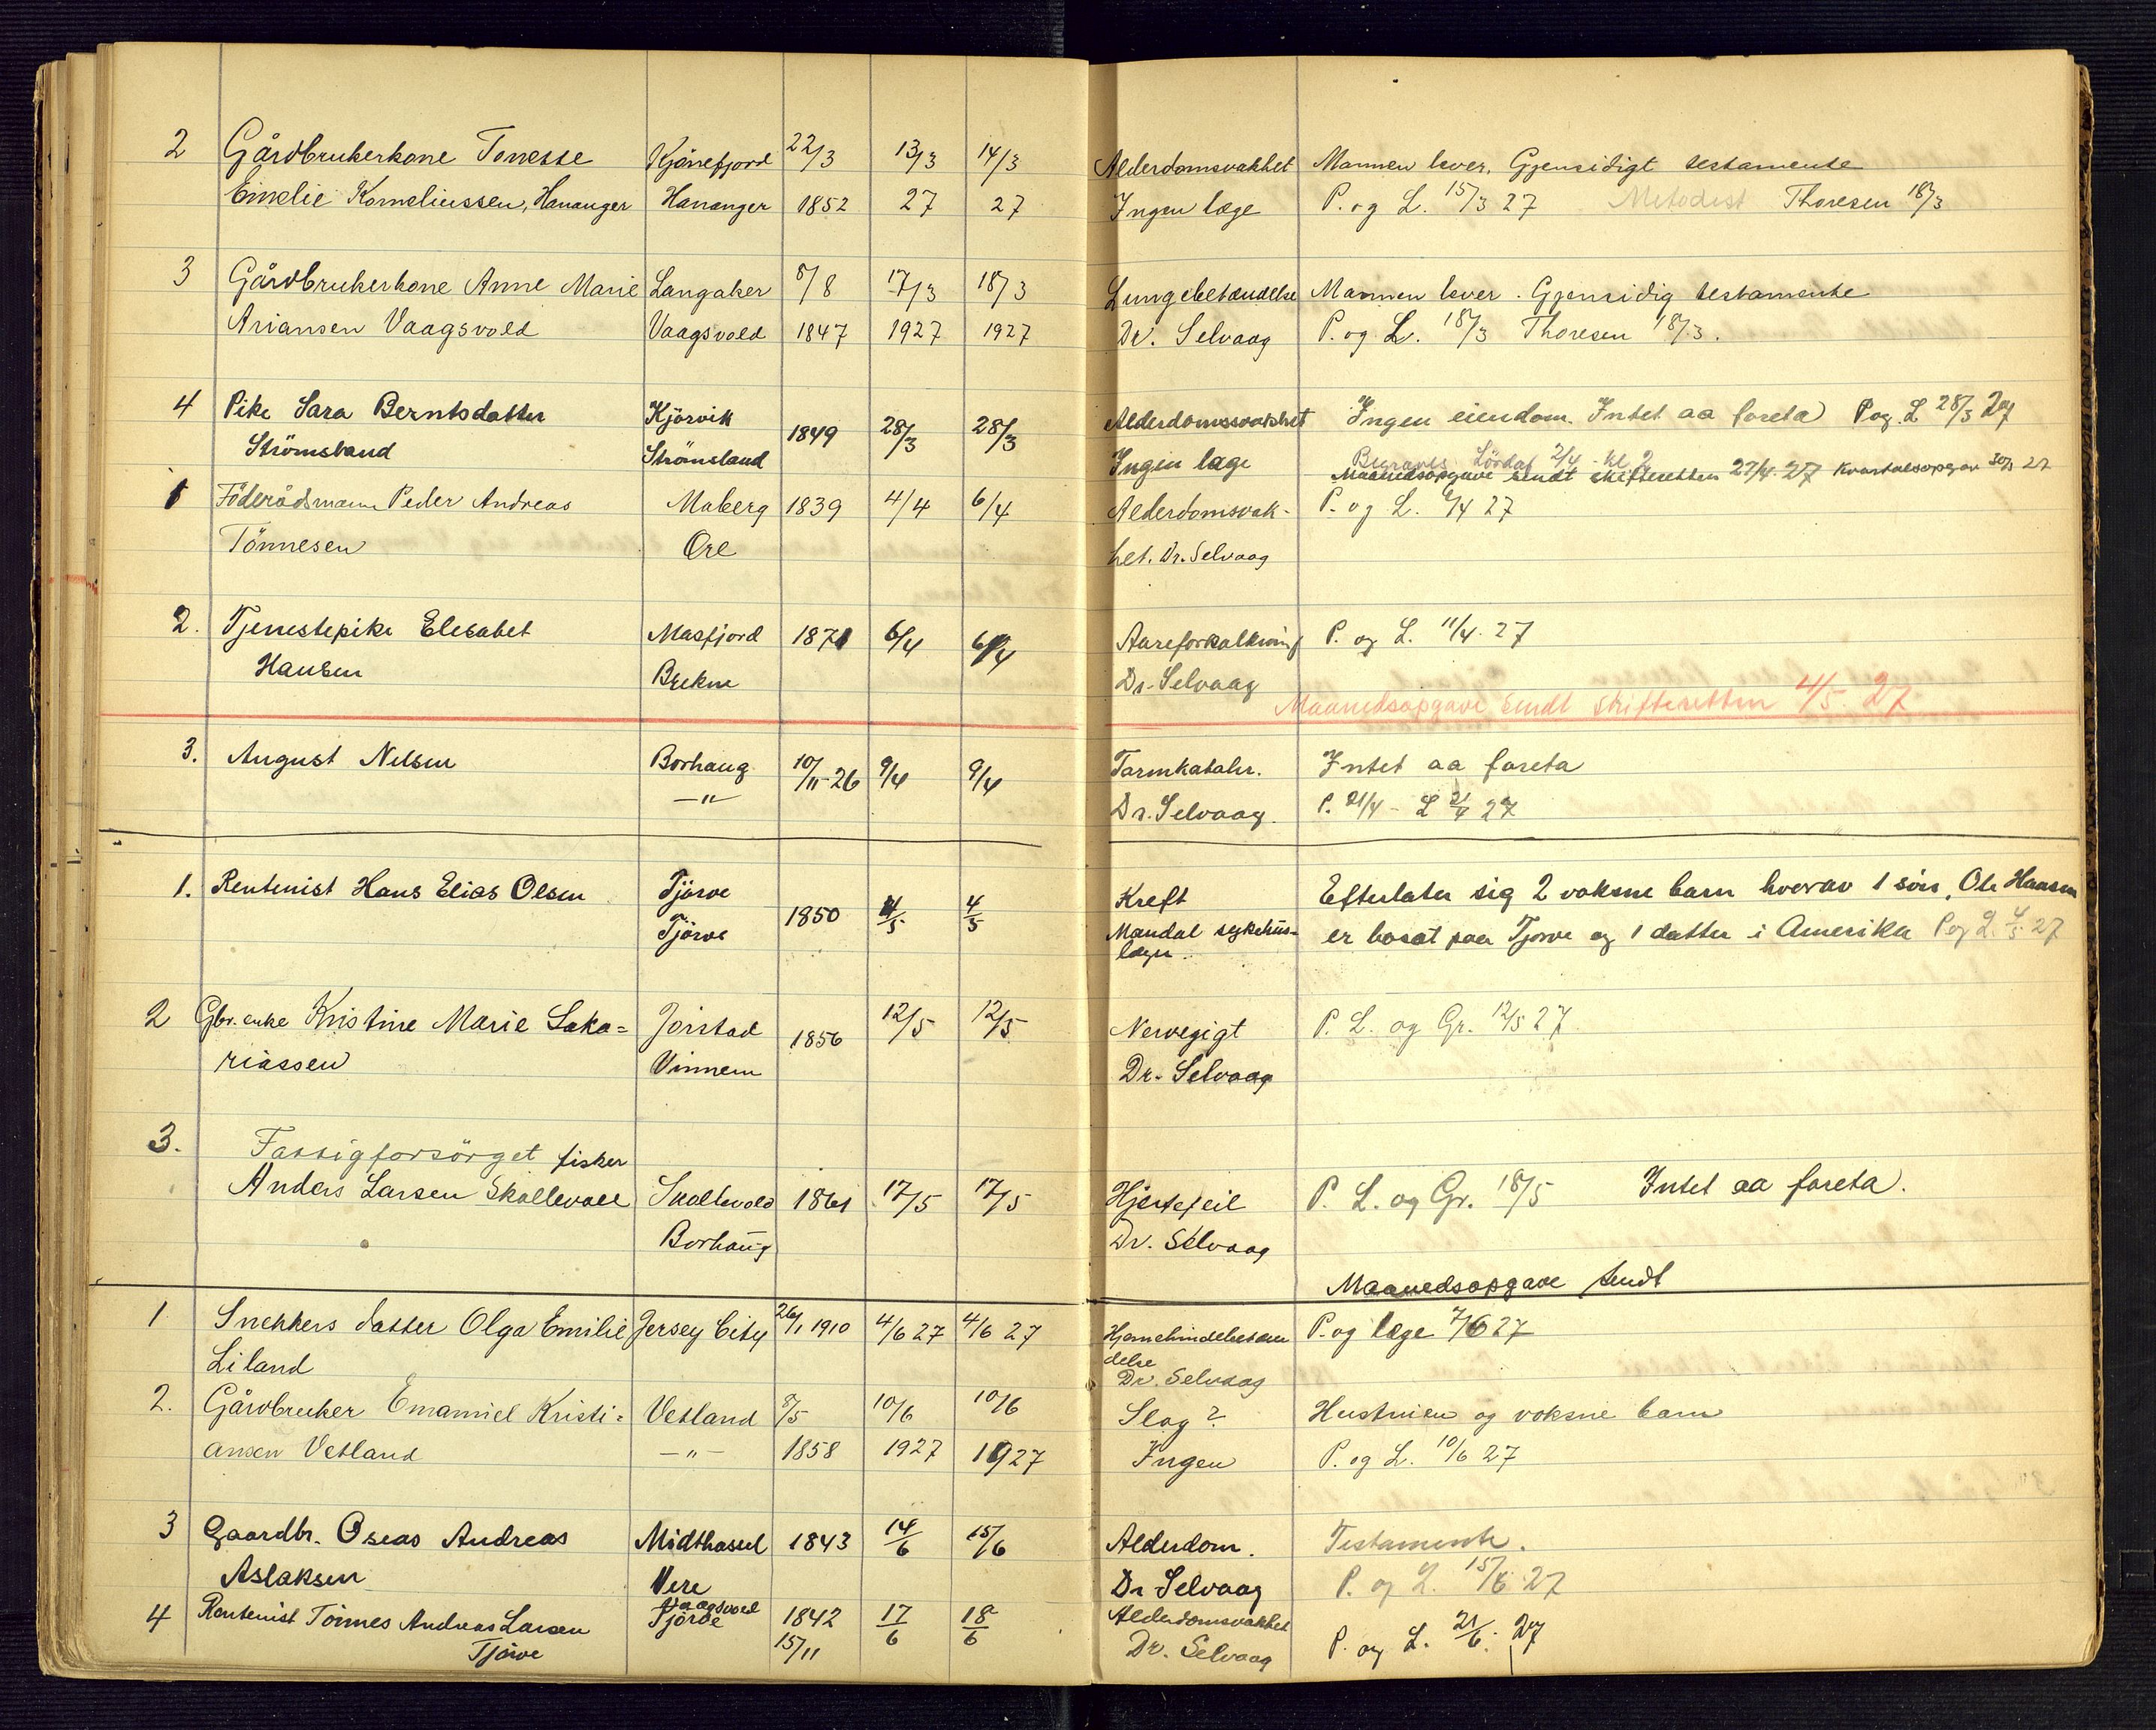 2 Gårdbrukerkone Tonesse Kjønefjord 22/3 13/3 14/3 Alderdomsvakhet Mannen lever. Gjensidigt testamente
Emelie Korneliussen, Hananger Hananger 1852 27 27 Ingen læge P. og L. 15/3 27 Metodist Thoresen 18/3
3 Gårdbrukerkone Anne Marie Langaker 8/8 17/3 18/3 Lungebetændelse Mannen lever. Gjensidig testamente
Ariansen Vaagsvold Vaagsvold 1847 1927 1927 Dr. Selvaag P. og L. 18/3 Thoresen 18/3.
4 Pike Sara Berntsdatter Kjörvik 1849 28/3 28/3 Alderdomssvakhet Ingen eiendom. Intet aa foreta P og. L 28/3 27
Strömsland Strömsland Ingen læge Begraves Lördag 2/4 kl 2
Maanedsopgave sendt skifteretten 27/4. 27 Kvartalsopgav 30/3 27
1 Föderådsmann Peder Andreas Maberg 1839 4/4 6/4 Alderdomsvak- P. og L. 6/4 27
Tönnesen Ore het. Dr. Selvaag
2. Tjenestepike Elesabet Masfjord 1871 6/4 6/4 Aareforkalkning P. og L. 11/4. 27
Hansen Brekne Dr. Selvaag
Maanedsopgave sendt skifteretten 4/5. 27
3. August Nelsen Borhaug 10/11-26 9/4 9/4 Tarmkatahr. Intet aa foreta
—"— Dr. Selvaag. P. 21/4 - L 21/4 27
1. Rentenist Hans Elias Olsen Tjörve 1850 4/5 4/5 Kreft Efterlater sig 2 voksne barn hvorav 1 sön, Ole Hansen
Tjörve Mandal sykehus- er bosat paa Tjörve og 1 datter i Amerika P og L. 4/5 27
læge.
2 Gbr. enke Kristine Marie Saka= Jörstad 1856 12/5 12/5 Nervegigt P. L. og Gr. 12/5 27.
riassen Vinnem Dr. Selvaag
3. Fattigforsörget fisker
Anders Larsen Skollevoll Skollevold 1861 17/5 17/5 Hjertefeil P. L. og Gr. 18/5 Intet aa foreta.
Borhaug Dr. Selvaag
Maanedsopgave sendt
1 Snekkers datter Olga Emilie Jersey City 26/1 1910 4/6 27 4/6 27 Hjernehindebetæn P. og læge 7/6 27
Liland delse
Dr. Selvaag
2. Gårdbruker Emanuel Kristi= Vetland 8/5 10/6 10/6 Slag? Hustruen og voksne barn
ansen Vetland —"— 1858 1927 1927 Ingen P. og L. 10/6 27
3 Gaardbr. Oseas Andreas Midthassel 1843 14/6 15/6 Alderdom. Testamente.
Aslaksen Vere Dr Selvaag P. og L. 15/6 27
4 Rentenist Tönnes Andreas Larsen Vaagsvold Tjörve 1842 17/6 18/6 Alderdomsvakhet P. og L. 21/6. 27
Tjörve 15/11 Dr. Selvaag